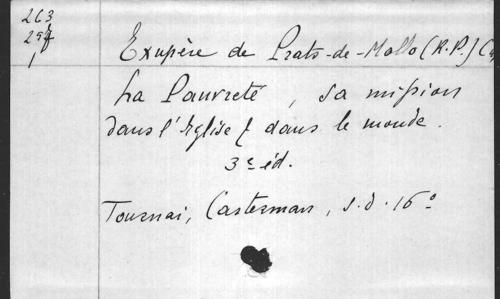 263
297
1
Exupère de Prats-de-Mollo (R.P.)
La Pauvreté, sa mission
dans l'Eglise & dans le monde.
3e éd.
Tournai, Casterman, s.d. 16°